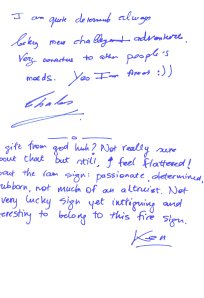 I am quite determined always
being more challenged adventurer.
Very sensitive to other people's
moods. Yes I am Aries! :))
gift from god huh? Not really sure
about that but still, I feel flattered!
about the ram sign: passionate, determined,
stubborn, not much of an altruist. Not
very lucky sign yet intriguing and
interesting to belong to this fire sign.
Ken